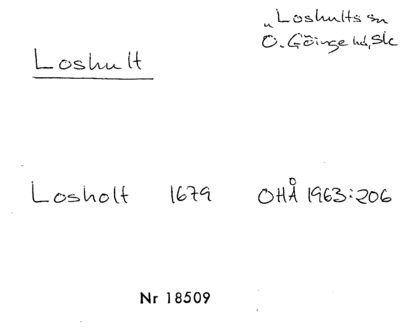 Loshult
„Loshults sn
Ö. Göinge hd, Sk
Losholt 1679 OHÅ 1963:206
Nr 18509